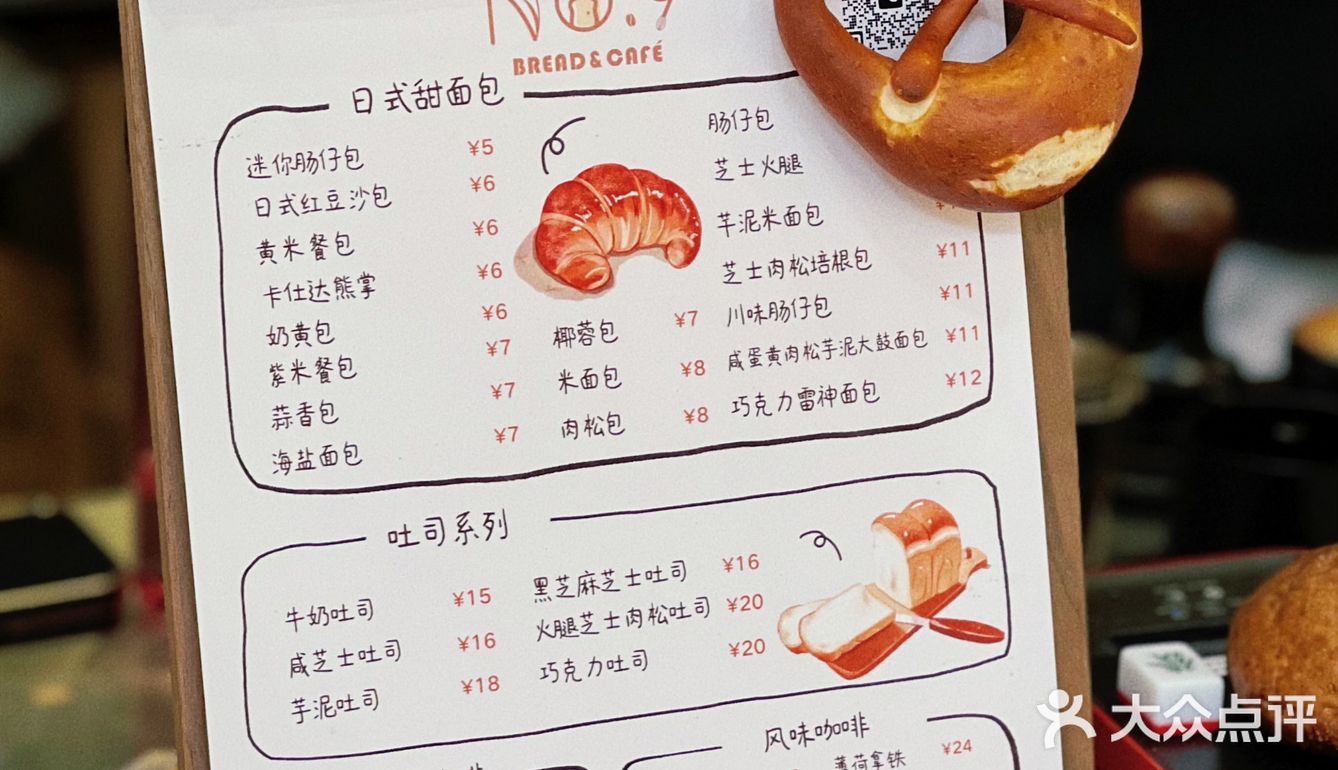 BREAD & CAFÉ
日式甜面包
迷你肠仔包 ¥5
日式红豆沙包 ¥6
黄米餐包 ¥6
卡仕达熊掌 ¥6
奶黄包 ¥6
紫米餐包 ¥7
蒜香包 ¥7
海盐面包 ¥7
椰蓉包 ¥7
米面包 ¥8
肉松包 ¥8
肠仔包
芝士火腿
芋泥米面包
芝士肉松培根包 ¥11
川味肠仔包 ¥11
咸蛋黄肉松芋泥大鼓面包 ¥11
巧克力雷神面包 ¥12
吐司系列
牛奶吐司 ¥15
咸芝士吐司 ¥16
芋泥吐司 ¥18
黑芝麻芝士吐司 ¥16
火腿芝士肉松吐司 ¥20
巧克力吐司 ¥20
风味咖啡
薄荷拿铁 ¥24
大众点评